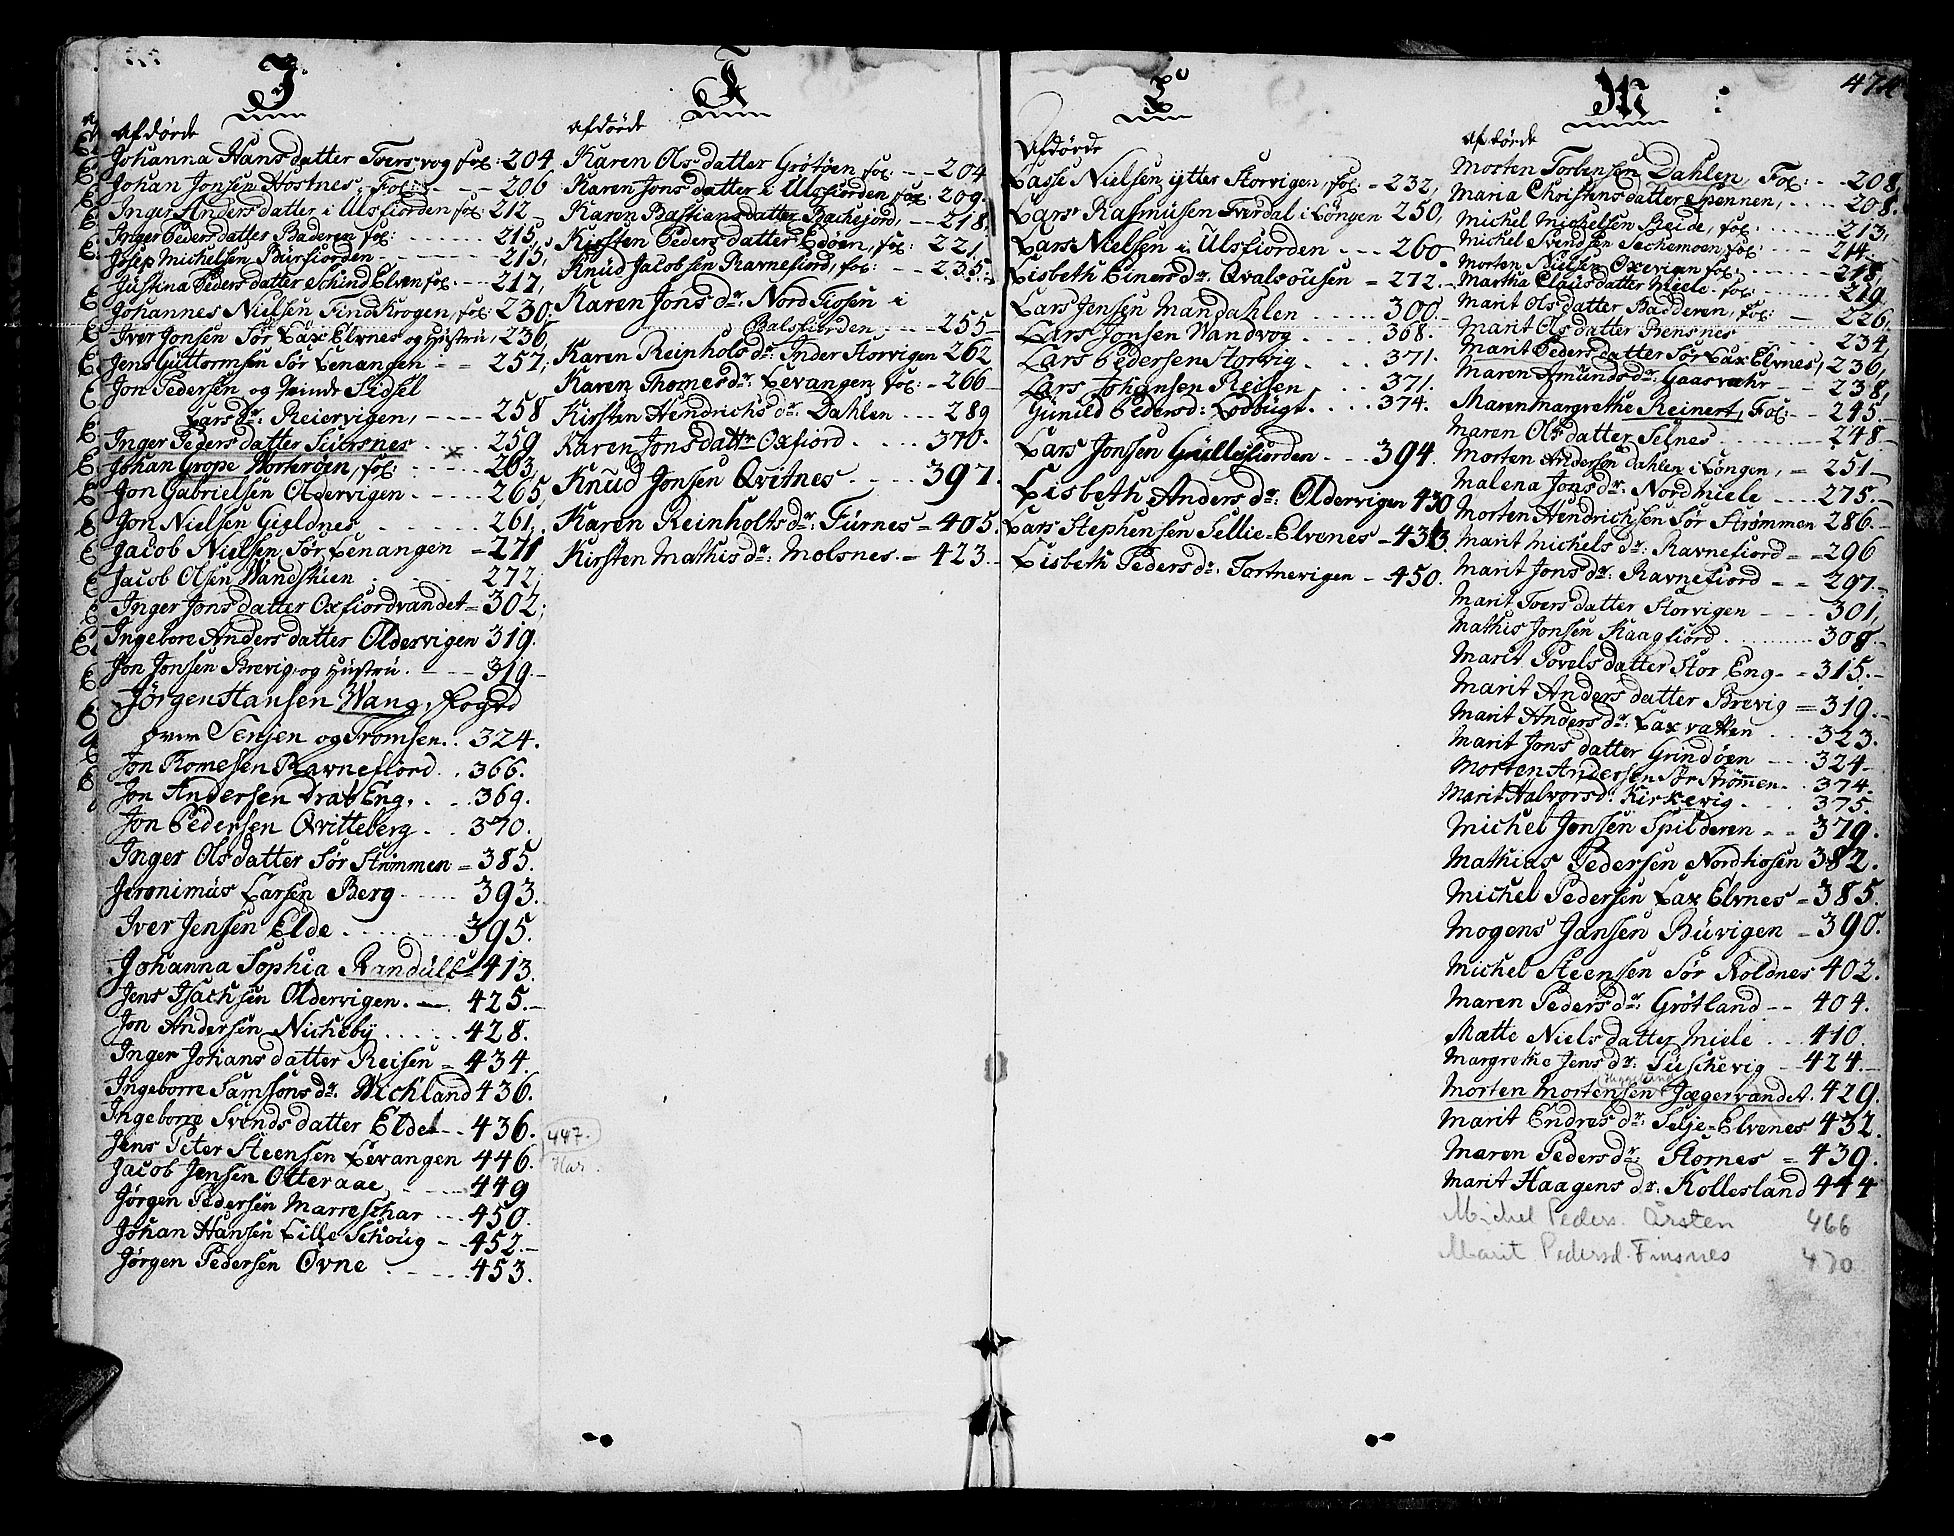 J.
Afdöde
Johanna Hans datter Toers vog fol: 204.
Johan Jonsen Hostnes, Fol: - - 206
Inger Anders datter i Ulsfiorden fol: 212
Inger Peders datter Baderen fol: 215,
Josep Michelsen Bursfiorden 215,
Justina Peders datter Schind Elven fol. 217,
Johannes Nielsen Find Krogen, fol: 230,
Iver Jonsen Sör Lax Elvnes og Hustru, 236,
Jens Guttormsen Sör Lenangen - - 257,
Jon Pedersen og Qvinde Sidsel
Lars dr: Reiervigen, - - 258
Inger Peders datter 259
Johan Grope fol: 263,
Jon Gabrielsen Oldervigen 265,
Jon Nielsen Gieldnes 261,
Jacob Nielsen, Sör Lenangen = 271
Jacob Olsen Vandstuen 272,
Inger Jons datter Oxfiordvandet = 302,
Ingebore Anders datter Oldervigen 319.
Jon Jonsen Brevig, og Hustru. 319.
Jörgen Hansen Wang, Foged
over Senjen og Tromsen.. 324.
Jon Romesen Ravnefiord.. 366.
Jon Andersen Drab Eng,. 369.
Jon Pedersen Qvitteberg.. 370.
Inger Olsdatter Sör Strömmen = 385.
Jeronimus Larsen Berg 393.
Iver Jensen Elde 395.
Johanna Sophia Randulf 413.
Jens Isachsen Oldervigen. 425.
Jon Andersen Nicheby 428.
Inger Johans datter Reisen = 434.
Ingeborre Samsons dr. Wichland 436.
Ingeborre Svends datter Elde 436.
Jens Peter Steensen Levangen 446.
Jacob Jensen Otteraae 449
Jörgen Pedersen Marreschar 450.
Johan Hansen Lille Schoug 452.
Jörgen Pedersen Övne 453.
K
Afdöde
Karen Ols datter Grötöen fol: 204
Karen Jons datter i Ulsfiorden fol: 209.
Karen Bastians datter Bachejord, 218,
Kirsten Peders datter fol: 221.
Knud Jacobsen Ravnefiord, fol: 235.
Karen Jons dr: Nord Fiosen i
Balsfiorden 255
Karen Reinhols dr: Inder Storvigen 262
Karen Thomes dr: Levangen, fol: 266
Kirsten Hendrichs dr: Dahlen 289
Karen Jonsdattr Oxfiord 370.
Knud Jonsen Qvitnes 397.
Karen Reinholts dr: Furnes = 405.
Kirsten Mathis dr: Molsnes. = 423.
447.
L
Afdöde
Lasse Nielsen ytter Storvigen, fol: = 232,
Lars Rasmusen Fverdal i Löngen 250,
Lars Nielsen i Ulsfiorden 260.
Lisbeth Einers dr: = 272.
Lars Jensen Mandahlen 300
Lars Jonsen Vandvog 368.
Lars Pedersen Storvig. 371.
Lars Johansen Reisen, 371.
Gunild Peders d: Lodbugt. 374.
Lars Jonsen Gullesfiorden 394.
Lisbeth Anders dr: Oldervigen 430
Lars Stephensen Sellie-Elvenes = 433.
Lisbeth Peders dr: Tortnevigen = 450.
474
M:
Afdöde
Morten Torbensen Dahlen, Fol: 208,
Maria Christens datter Spennen, 208.
Michel Michelsen Beide, fol: 213,
Michel Svendsen Sechemoen fol 214
Morten Nielsen Oxevigen fol: 218,
Martha Claus datter Miele, fol: 219
Marit Ols datter Badderen, fol: 226,
Marit Ols datter Bensnes 234
Marit Peders datter Sör Lax Elvnes, 236,
Maren Amunds dr: Gaasvær 238,
Maren Margrethe Reinert, Fol: 245
Maren Ols datter Selnes 248
Morten Andersen Dahlen i Löngen, = 251
Malena Jons dr: Nordmiele 275.
Morten Hendrichsen Sör Strömmen 286.
Marit Michels dr: Ravnefiord = = 296
Marit Jons dr: Ravnefiord - = 297.
Marit Toers datter Storvigen 301,
Mathis Jonsen Kaagfiord 308
Marit Povels datter Stor Eng = 315.
Marit Anders datter Brevig = 319.
Marit Anders dr: Lax vatten 323.
Marit Jons datter Grindöen 324
Morten Andersen Sör Strömmen. 374.
Marit Halvors d: Kirkevig. 375.
Michel Jonsen Spilderen 379.
Mathias Pedersen Nordhosen 382.
Michel Pedersen Lax Elvnes = 385.
Mogens Jansen Buvigen = 390.
Michel Steensen Sör Roldnes 402.
Maren Peders dr: Grötland 404.
Matte Niels datter Miele 410.
Margrethe Jens dr: 424
Morten Mortensen Jægervandet. 429.
Marit Endres dr: Selje-Elvenes 432.
Maren Peders dr: Stornes = 439.
Marit Haagens dr: Kollesland 444
Michel Peders. Årsten 466
Marit Pedersd. Finsnes 470